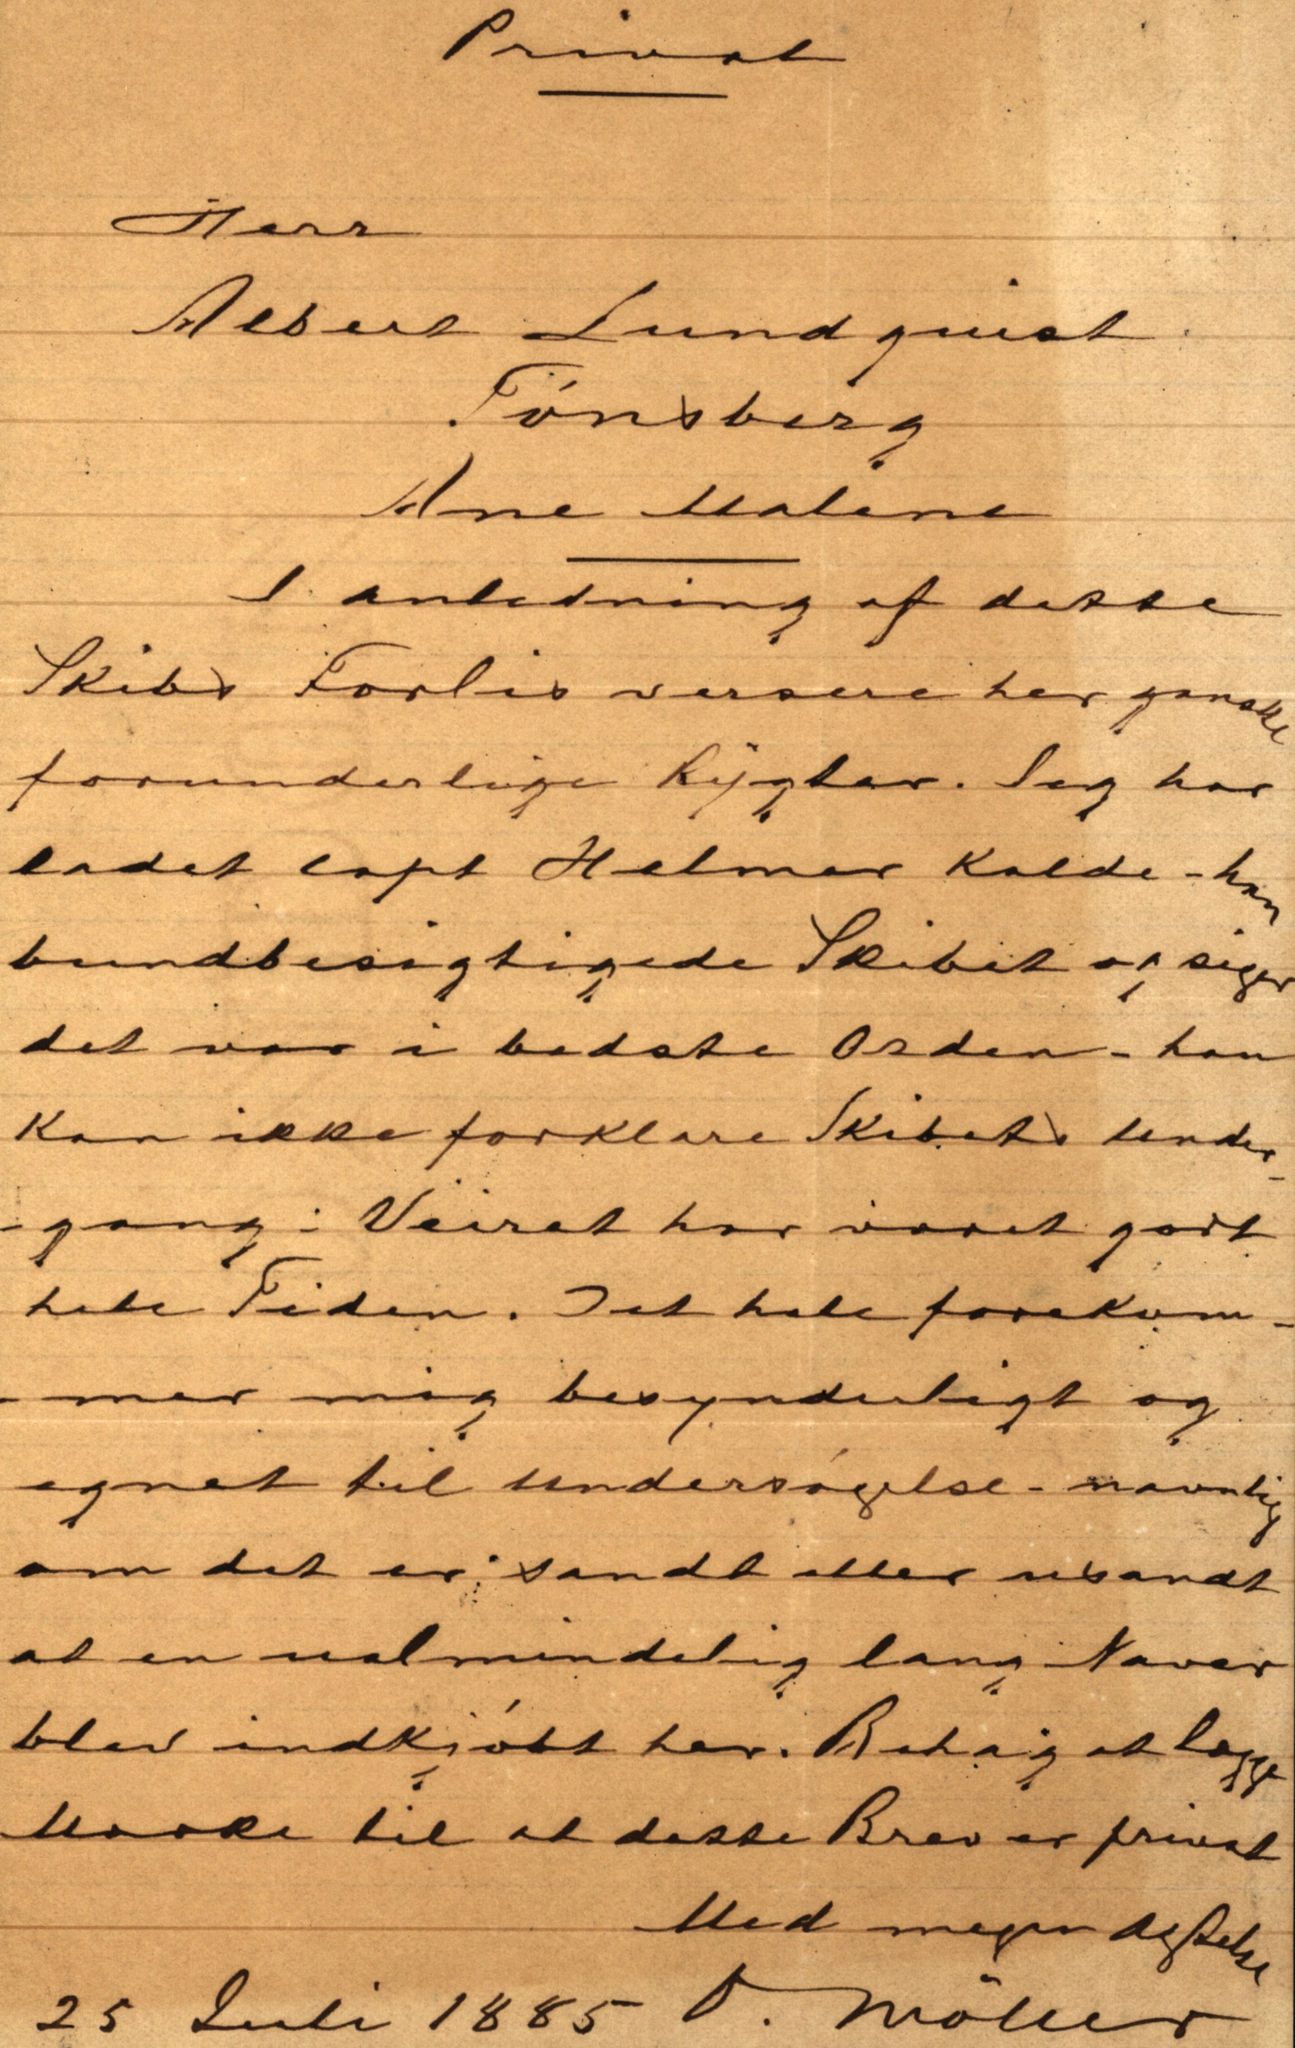 Privat
Herr
Albert Lundquist
Tönsberg
Ane Malene
I anledning af dette
Skibs Forlis versere her ganske
forunderlige Rygter. Jeg har
ladet Capt Helmer Kalde - han
bundbesigtigede Skibet og siger
det var i bedste Orden - han
kan ikke forklare Skibets Under-
-gang: Veiret har været godt
hele Tiden. Det hele forekom-
-mer mig besynderligt og
egnet til Undersøgelse - navnlig
om det er sandt eller usandt
at en ualmindelig lang Naver
blev indkjöbt her. Behag at lægge
Mærke til at dette Brev er privat
Med megen Agtelse
25 Juli 1885 O. Möller